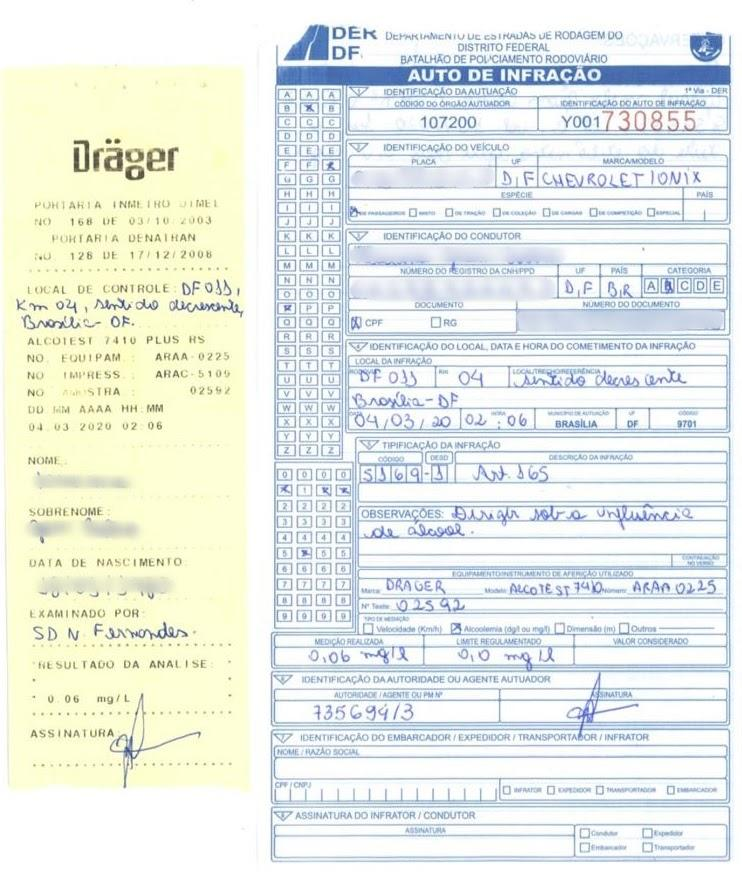 Dräger
PORTARIA INMETRO DIMEL
NO 168 DE 03/10/2003
PORTARIA DENATRAN
NO 128 DE 17/12/2008
LOCAL DE CONTROLE: DF 011,
Km 04, sentido decrescente,
Brasília-DF.
ALCOTEST 7410 PLUS RS
NO. EQUIPAM.: ARAA-0225
NO IMPRESS.: ARAC-5109
NO AMOSTRA: 02592
DD MM AAAA HH:MM
04.03.2020 02:06
NOME:
SOBRENOME:
DATA DE NASCIMENTO:
EXAMINADO POR:
SD N. Fernandes.
RESULTADO DA ANALISE:
0.06 mg/L
ASSINATURA
DER DF
DEPARTAMENTO DE ESTRADAS DE RODAGEM DO
DISTRITO FEDERAL
BATALHÃO DE POLICIAMENTO RODOVIÁRIO
AUTO DE INFRAÇÃO
1 IDENTIFICAÇÃO DA AUTUAÇÃO 1ª Via - DER
CÓDIGO DO ÓRGÃO AUTUADOR IDENTIFICAÇÃO DO AUTO DE INFRAÇÃO
107200 Y001730855
2 IDENTIFICAÇÃO DO VEÍCULO
PLACA UF MARCA/MODELO
DF CHEVROLET IONIX
ESPÉCIE PAÍS
DE PASSAGEIROS MISTO DE TRAÇÃO DE COLEÇÃO DE CARGAS DE COMPETIÇÃO ESPECIAL
3 IDENTIFICAÇÃO DO CONDUTOR
NÚMERO DO REGISTRO DA CNH/PPD UF PAÍS CATEGORIA
DF BR A B C D E
DOCUMENTO NÚMERO DO DOCUMENTO
CPF RG
4 IDENTIFICAÇÃO DO LOCAL, DATA E HORA DO COMETIMENTO DA INFRAÇÃO
LOCAL DA INFRAÇÃO
RODOVIA Km LOCAL/TRECHO/REFERÊNCIA
DF 011 04 sentido decrescente
Brasília-DF
DATA HORA MUNICÍPIO DE AUTUAÇÃO UF CÓDIGO
04/03/20 02:06 BRASÍLIA DF 9701
5 TIPIFICAÇÃO DA INFRAÇÃO
CÓDIGO DESD DESCRIÇÃO DA INFRAÇÃO
5169-1 Art. 165
OBSERVAÇÕES: Dirigir sob a influência
de álcool.
CONTINUAÇÃO NO VERSO
EQUIPAMENTO/INSTRUMENTO DE AFERIÇÃO UTILIZADO
Marca: DRAGER Modelo: ALCOTEST 7410 Número: ARAA 0225
Nº Teste: 02592
TIPO DE MEDIÇÃO
Velocidade (Km/h) Alcoolemia (dg/l ou mg/l) Dimensão (m) Outros
MEDIÇÃO REALIZADA LIMITE REGULAMENTADO VALOR CONSIDERADO
0,06 mg/l 0,0 mg/l
6 IDENTIFICAÇÃO DA AUTORIDADE OU AGENTE AUTUADOR
AUTORIDADE / AGENTE OU PM Nº ASSINATURA
735694/3
7 IDENTIFICAÇÃO DO EMBARCADOR / EXPEDIDOR / TRANSPORTADOR / INFRATOR
NOME / RAZÃO SOCIAL
CPF / CNPJ INFRATOR EXPEDIDOR TRANSPORTADOR EMBARCADOR
8 ASSINATURA DO INFRATOR / CONDUTOR
ASSINATURA Condutor Expedidor
Embarcador Transportador